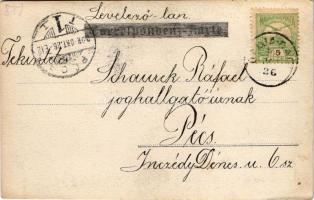 Levelező-lap.
Correspondenz-Karte
Tekintetes
Schauck Ráfael
joghallgató úrnak
Pécs
Inczédy Dénes u. 6 sz.
5
26